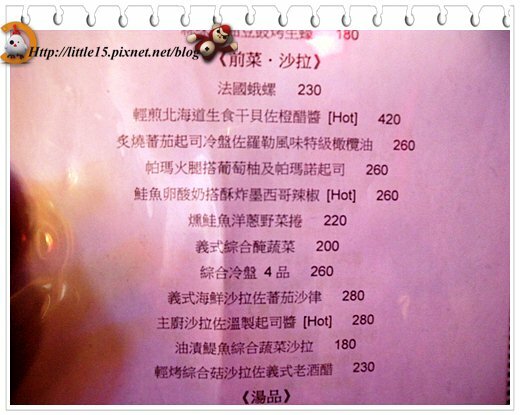 Http://little15.pixnet.net/blog
豆豉烤生蠔 180
《前菜・沙拉》
法國蛾螺 230
輕煎北海道生食干貝佐橙醋醬 [Hot] 420
炙燒蕃茄起司冷盤佐羅勒風味特級橄欖油 260
帕瑪火腿搭葡萄柚及帕瑪諾起司 260
鮭魚卵酸奶搭酥炸墨西哥辣椒 [Hot] 260
燻鮭魚洋蔥野菜捲 220
義式綜合醃蔬菜 200
綜合冷盤 4 品 260
義式海鮮沙拉佐蕃茄沙律 280
主廚沙拉佐溫製起司醬 [Hot] 280
油漬鯷魚綜合蔬菜沙拉 180
輕烤綜合菇沙拉佐義式老酒醋 230
《湯品》